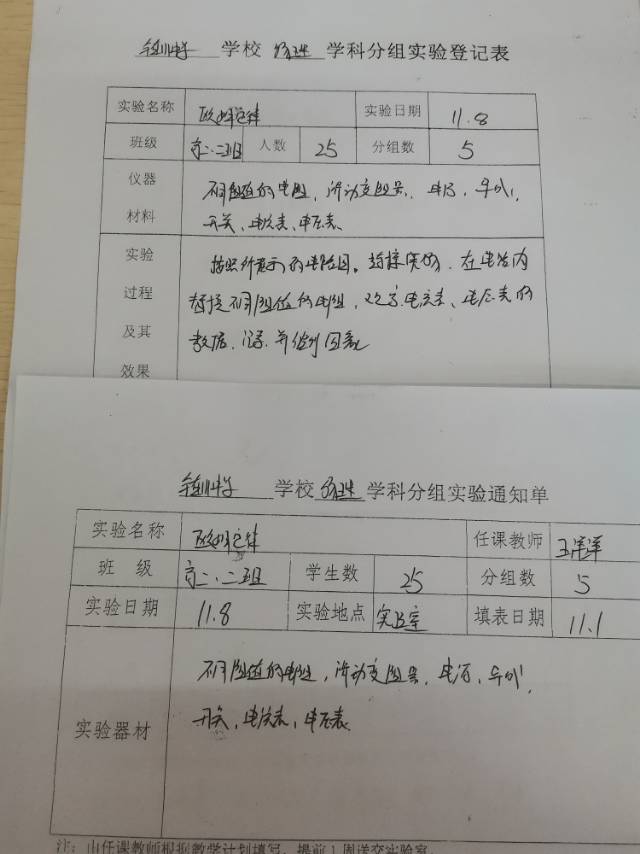 学校 物理 学科分组实验登记表
实验名称 欧姆定律 实验日期 11.8
班级 高二.二班 人数 25 分组数 5
仪器 不同阻值的电阻，滑动变阻器，电源，导线，
材料 开关、电流表、电压表、
实验 按照所示的电路图。连接实物．在电路内
过程 接不同阻值的电阻，电流表、电压表的
及其 数据．记录．并绘制图像
效果
学校 物理 学科分组实验通知单
实验名称 欧姆定律 任课教师 王洋洋
班 级 高二.二班 学生数 25 分组数 5
实验日期 11.8 实验地点 实验室 填表日期 11.1
不同阻值的电阻，滑动变阻器，电源，导线，
开关、电流表、电压表
实验器材
注：由任课教师根据教学计划填写，提前1周送交实验室